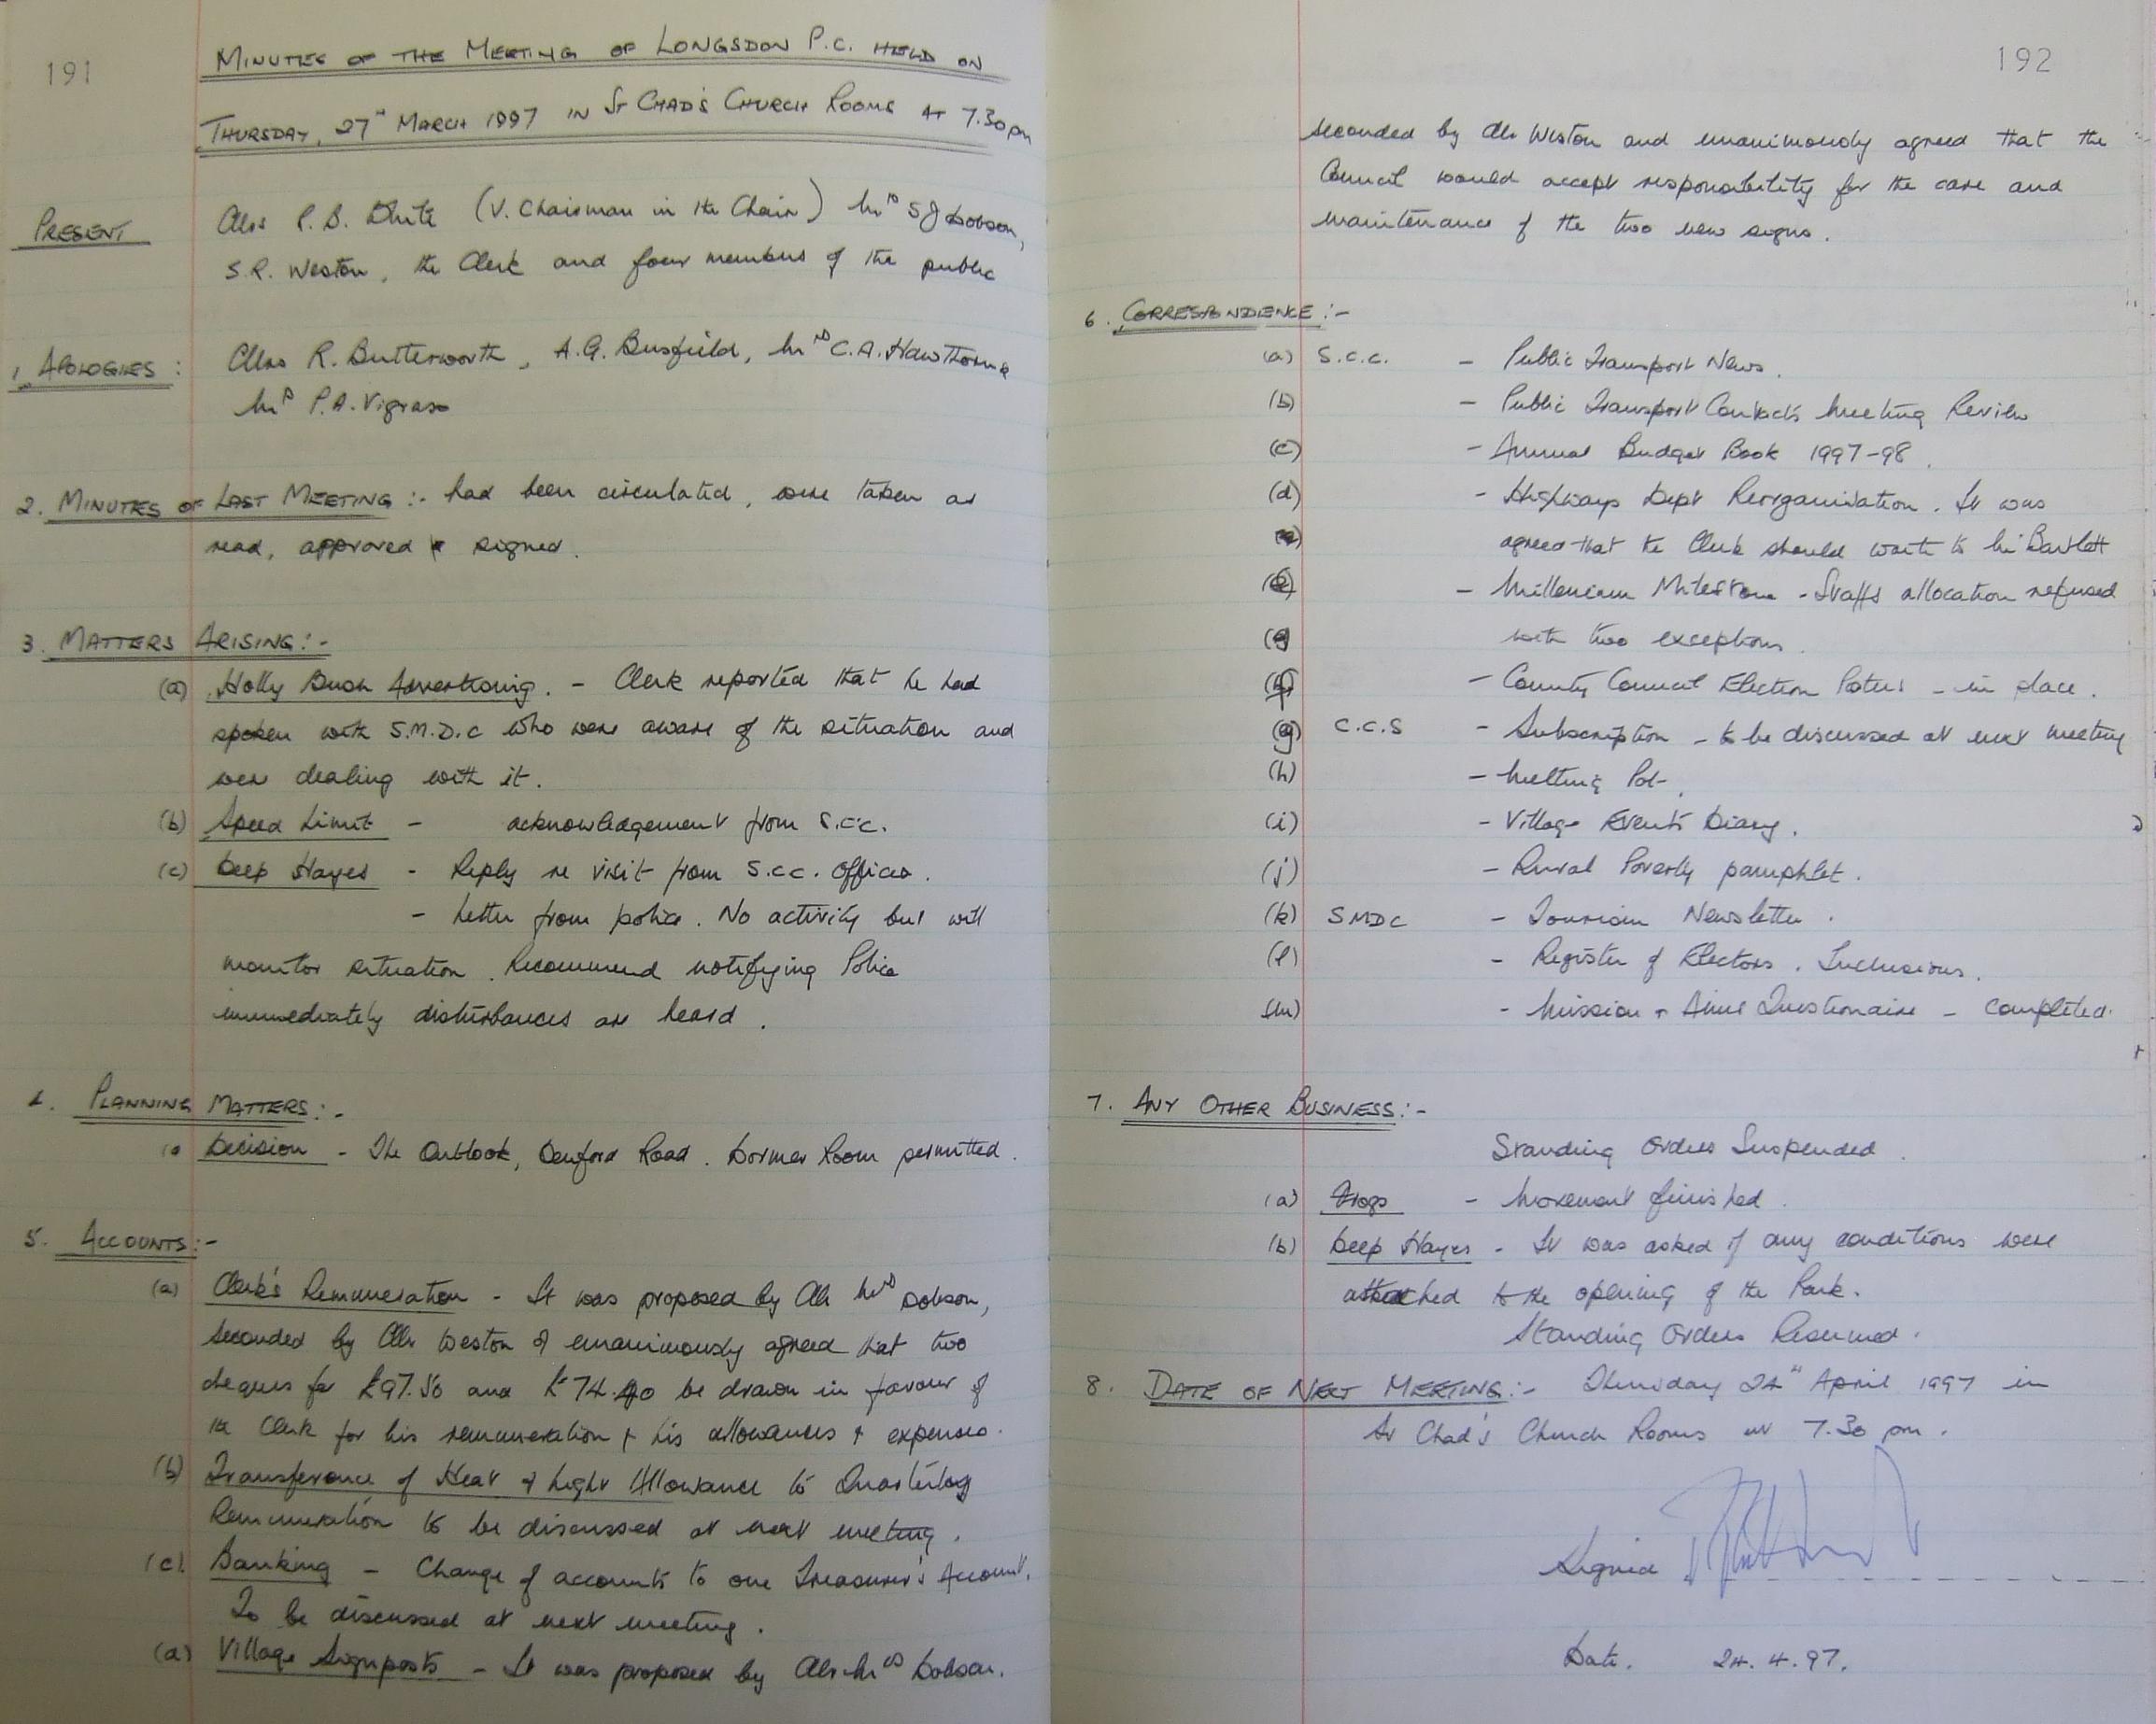 191
MINUTES OF THE MEETING OF LONGSDON P.C. HELD ON
THURSDAY, 27th MARCH 1997 IN St CHAD'S CHURCH ROOMS AT 7.30pm
PRESENT Cllrs P. B. White (V. Chairman in the Chair) Mrs S J Dobson,
S.R. Weston, the Clerk and four members of the public
1, APOLOGIES: Cllrs R. Butterworth, A.G. Busfield, Mrs C.A. Hawthorne
Mrs P.A. Vigrass
2. MINUTES OF LAST MEETING:- had been circulated, were taken as
read, approved & signed.
3. MATTERS ARISING:-
(a) Holly Bush Advertising. - Clerk reported that he had
spoken with S.M.D.C who were aware of the situation and
were dealing with it.
(b) Speed Limit - acknowledgement from S.C.C.
(c) Deep Hayes - Reply re visit from S.C.C. Officer.
- Letter from police. No activity but will
monitor situation. Recommend notifying Police
immediately disturbances are heard.
4. PLANNING MATTERS:-
Decision - The Outlook, Denford Road. Dormer Room permitted.
5. ACCOUNTS:-
(a) Clerk's Remuneration - It was proposed by Cllr Mrs Dobson,
seconded by Cllr Weston & unanimously agreed that two
cheques for £97.50 and £74.40 be drawn in favour of
the Clerk for his remuneration + his allowances + expenses.
(b) Transference of Heat & Light Allowance to Quarterley
Remuneration to be discussed at next meeting.
(c). Banking - Change of accounts to one Treasurer's Account.
To be discussed at next meeting.
(d) Village Signposts - It was proposed by Cllr Mrs Dobson.
192
seconded by Cllr Weston and unanimously agreed that the
Council would accept responsibility for the care and
maintenance of the two new signs.
6. CORRESPONDENCE:-
(a) S.C.C. - Public Transport News.
(b) - Public Transport Contacts Meeting Review
(c) - Annual Budget Book 1997-98.
(d) - Highways Dept Reorganisation. It was
agreed that the Clerk should write to Mr Bartlett
(e) - Millenium Milestone - Staffs allocation refused
with two exceptions.
(f) - County Council Election Posters - in place.
(g) C.C.S - Subscription - to be discussed at next meeting
(h) - Melting Pot.
(i) - Village Events Diary.
(j) - Rural Poverty pamphlet.
(k) SMDC - Tourism Newsletter.
(l) - Register of Electors. Inclusions.
(m) - Mission + Aims Questionaire - completed.
7. ANY OTHER BUSINESS:-
Standing Orders Suspended.
(a) Frogs - Movement finished.
(b) Deep Hayes - It was asked if any conditions were
attached to the opening of the Park.
Standing Orders Resumed.
8. DATE OF NEXT MEETING:- Thursday 24th April 1997 in
St Chad's Church Rooms at 7.30 pm.
Signed
Date. 24.4.97.